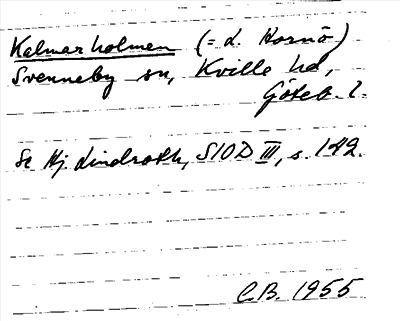 Kalmar holmen (= d. Hornö)
Svenneby sn, Kville hd,
Göteb. l.
Se Hj. Lindroth, SIOD III, s. 142.
C.B. 1955